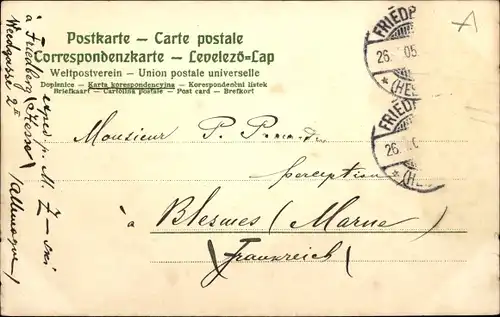 Postkarte — Carte postale
Correspondenzkarte — Levelező-Lap
Weltpostverein — Union postale universelle
Dopisnice — Karta korespondencyjna — Korespondenčni lístek
Briefkaart — Cartolina postale — Post card — Brefkort
FRIEDB
26. 05
(HES
FRIEDB
26.
(HE
Monsieur P. P
perception
à Blesmes (Marne)
(Frankreich)
exped. p. M. Z—ski
à Friedberg (Hessen)
Weedgasse 2
(Allemagne)